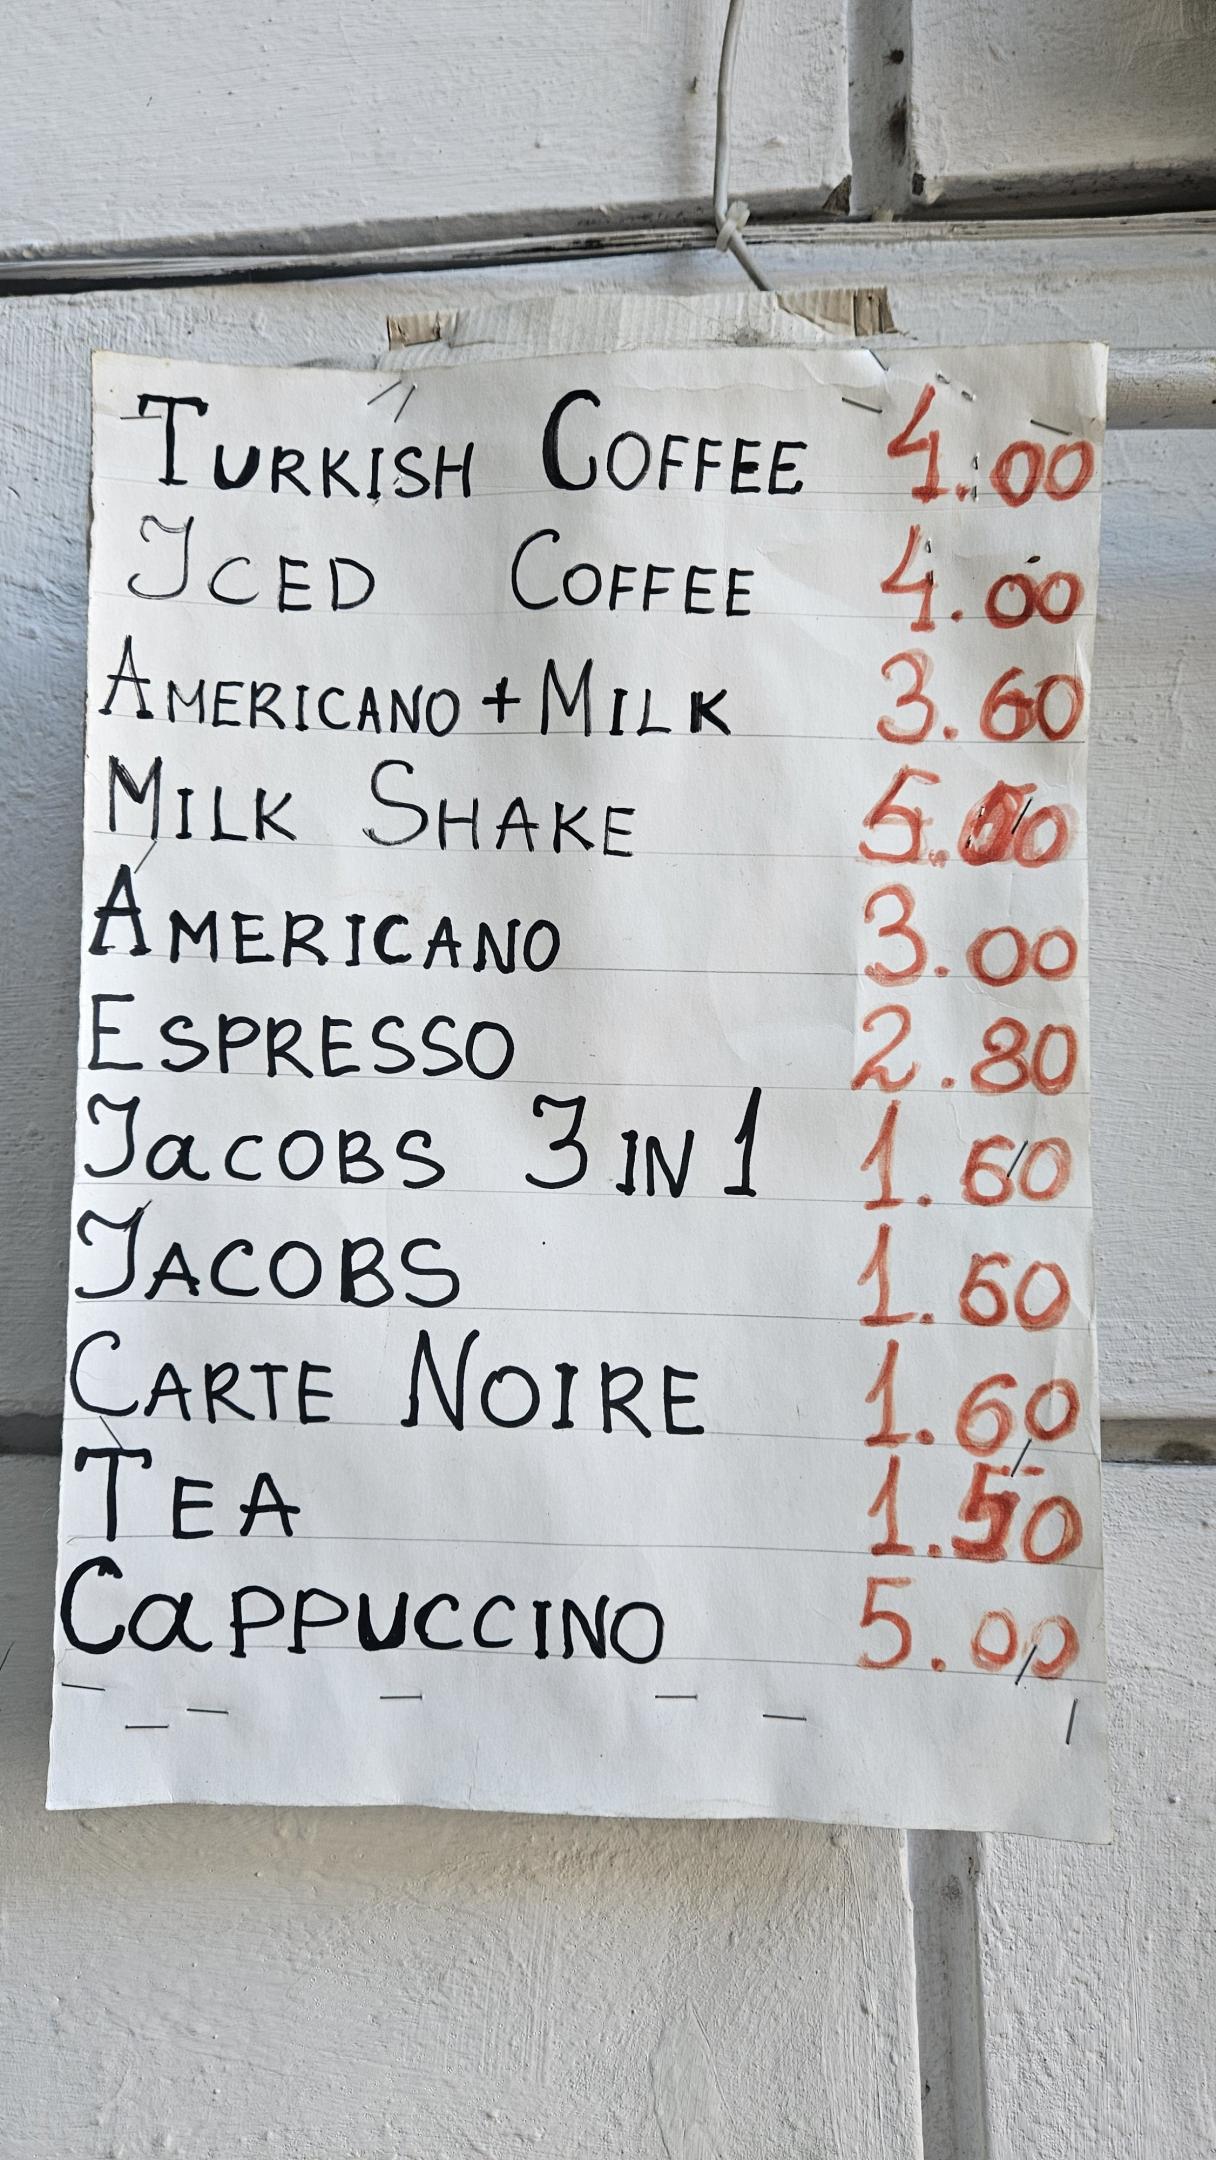 TURKISH COFFEE 4.00
ICED COFFEE 4.00
AMERICANO + MILK 3.60
MILK SHAKE
AMERICANO 3.00
ESPRESSO 2.80
JaCOBS 3 IN 1 1.60
JACOBS 1.60
CARTE NOIRE 1.60
TEA 1.50
CaPPUCCINO 5.00